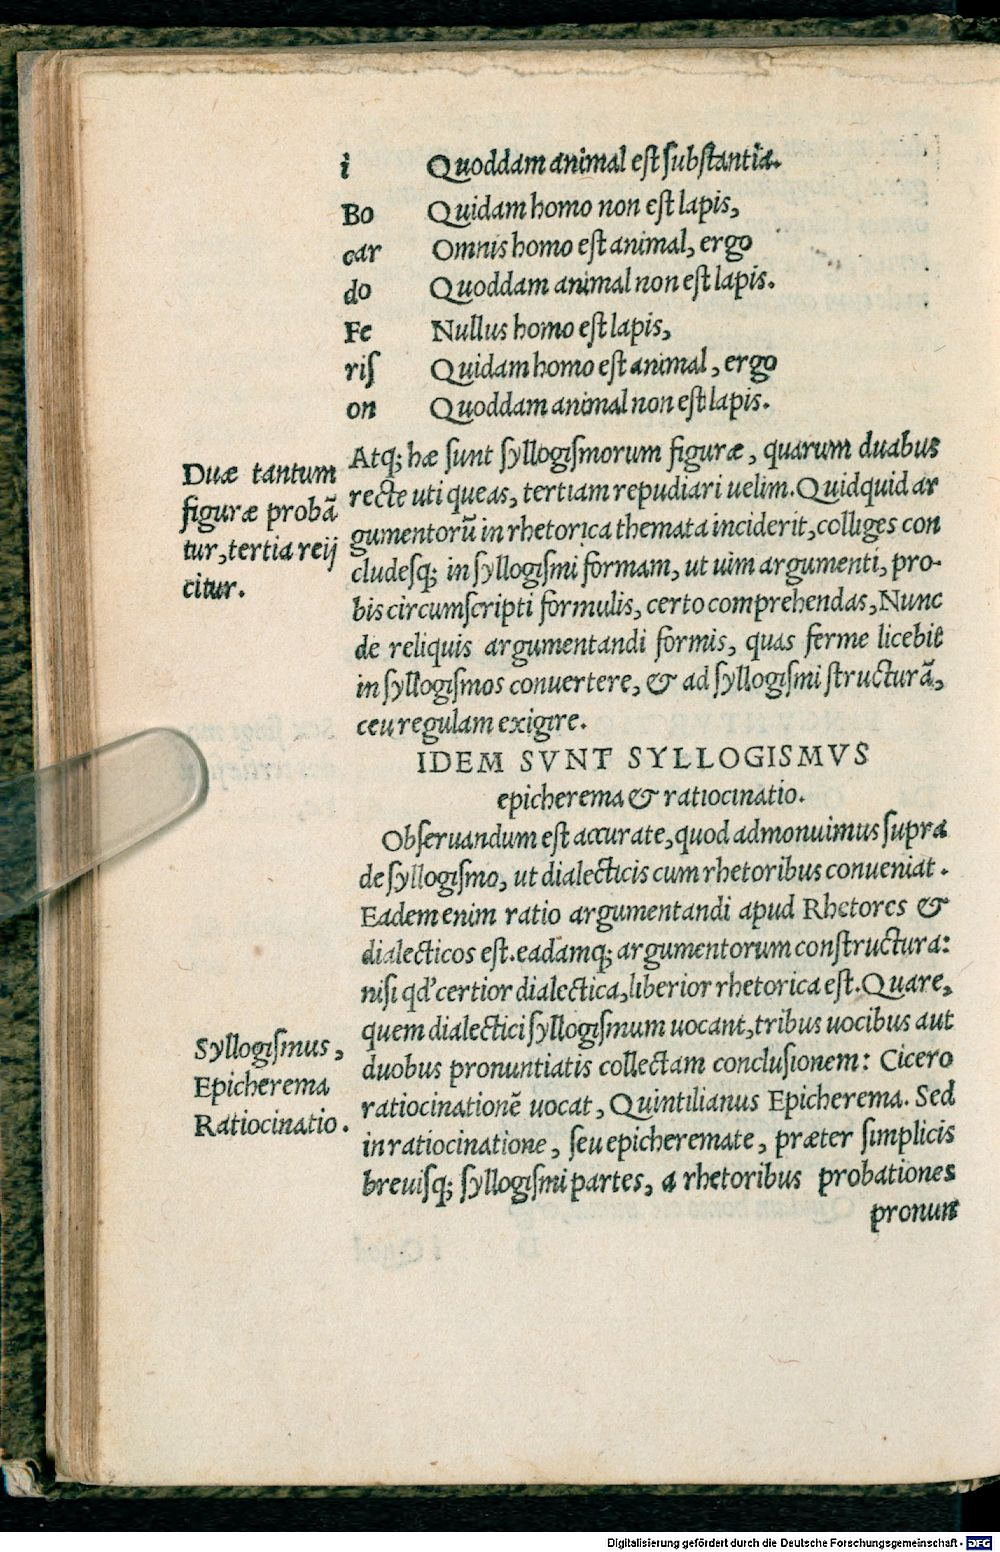 i Quoddam animal est substantia.
Bo Quidam homo non est lapis,
car Omnis homo est animal, ergo
do Quoddam animal non est lapis.
Fe Nullus homo est lapis,
ris Quidam homo est animal, ergo
on Quoddam animal non est lapis.
Duæ tantum
figuræ probã
tur, tertia reij
citur.
Atq; hæ sunt syllogismorum figuræ, quarum duabus
recte uti queas, tertiam repudiari uelim. Quidquid ar
gumentorũ in rhetorica themata inciderit, colliges con
cludesq; in syllogismi formam, ut uim argumenti, pro-
bis circumscripti formulis, certo comprehendas, Nunc
de reliquis argumentandi formis, quas ferme licebit
in syllogismos conuertere, & ad syllogismi structurã,
ceu regulam exigere.
IDEM SVNT SYLLOGISMVS
epicherema & ratiocinatio.
Obseruandum est accurate, quod admonuimus supra
de syllogismo, ut dialecticis cum rhetoribus conueniat.
Eadem enim ratio argumentandi apud Rhetores &
dialecticos est. eadamq; argumentorum constructura:
nisi qd' certior dialectica, liberior rhetorica est. Quare,
quem dialectici syllogismum uocant, tribus uocibus aut
duobus pronuntiatis collectam conclusionem: Cicero
ratiocinationẽ uocat, Quintilianus Epicherema. Sed
in ratiocinatione, seu epicheremate, præter simplicis
breuisq; syllogismi partes, a rhetoribus probationes
Syllogismus,
Epicherema
Ratiocinatio.
pronun
Digitalisierung gefördert durch die Deutsche Forschungsgemeinschaft - DFG